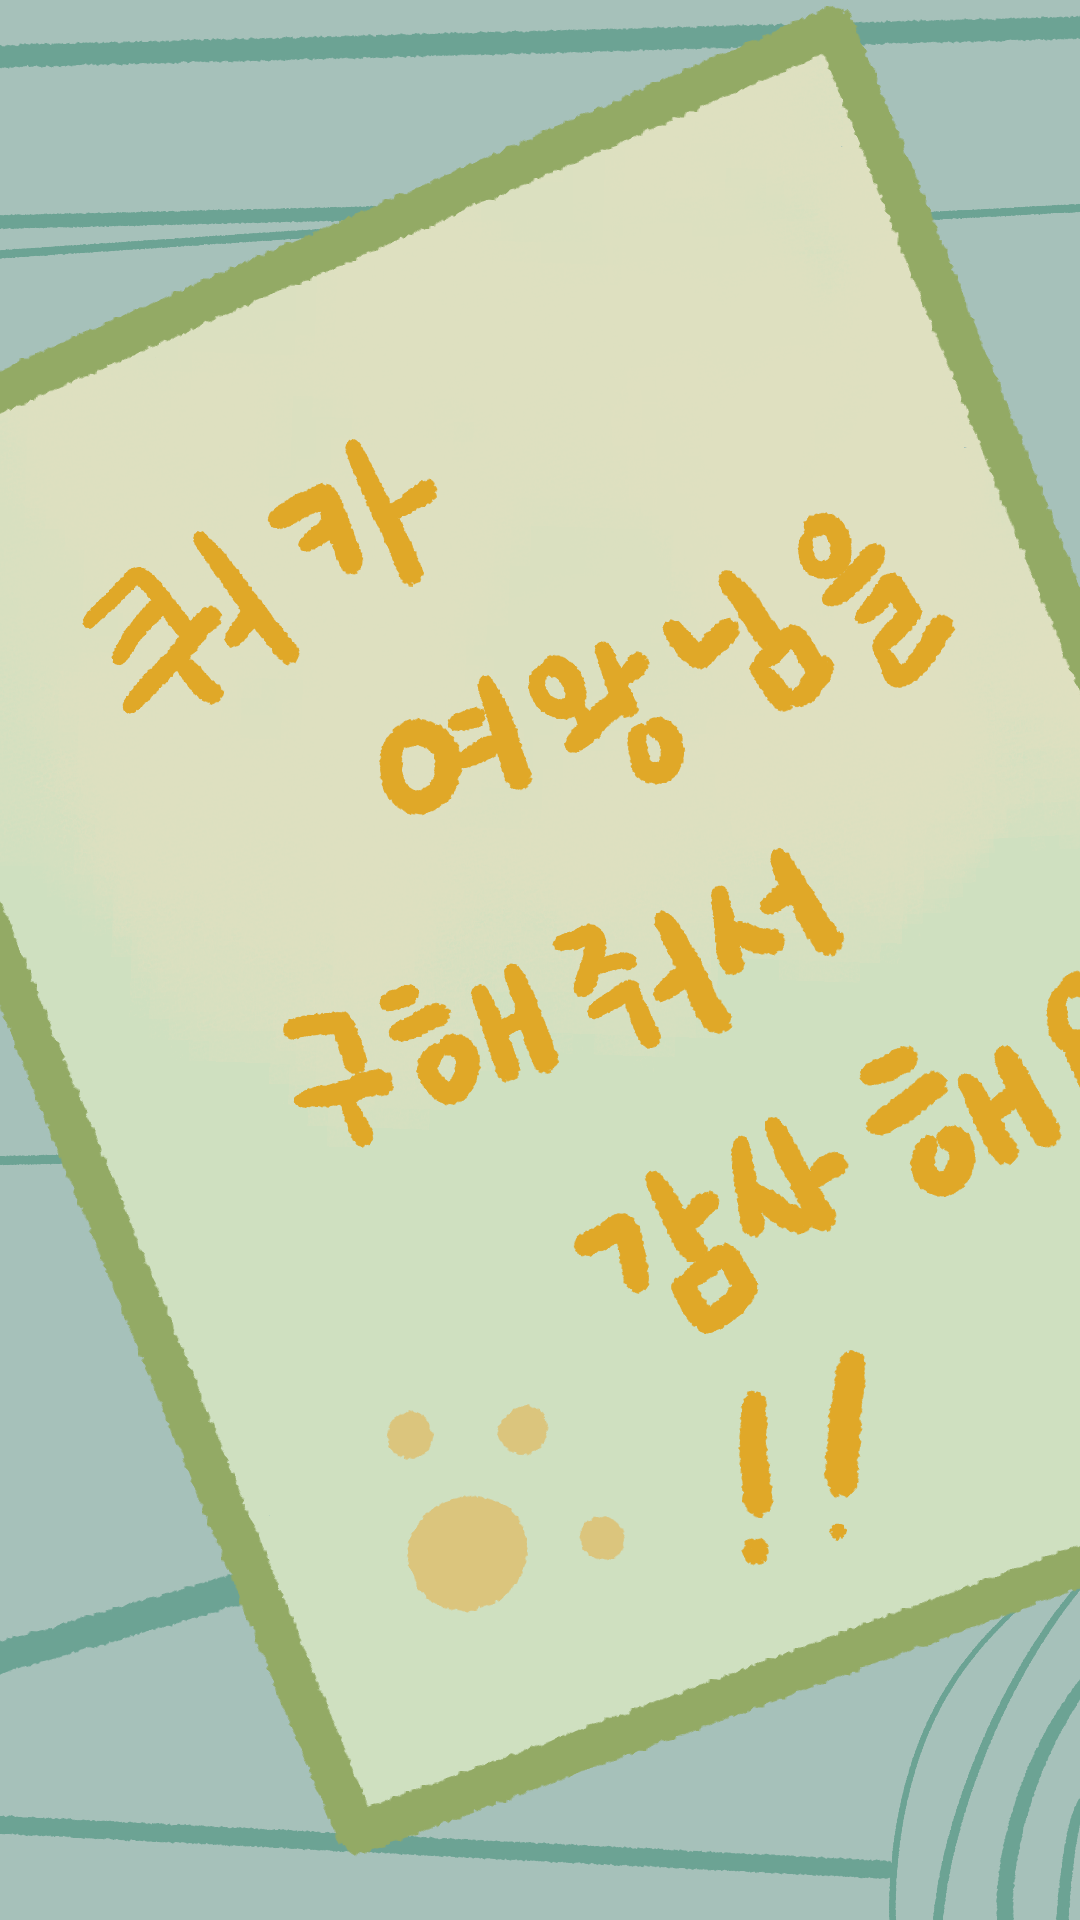 쿼카
여왕님을
구해줘서
감사해
!!